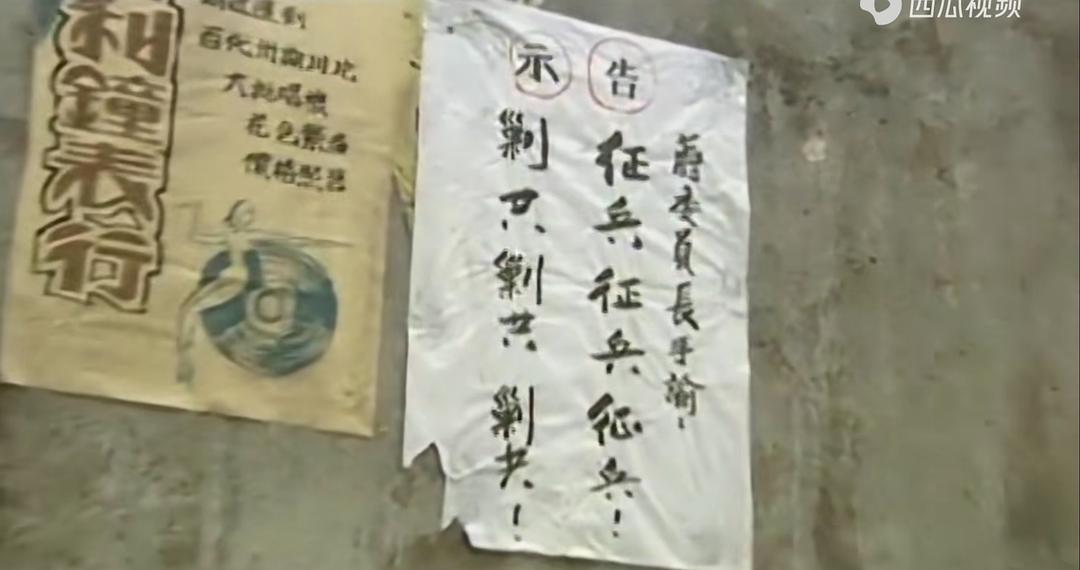 西瓜视频
告示
蔣委員長手諭！
征兵征兵征兵！
剿共剿共剿共！
大批唱機
花色繁多
價格
利鐘表行